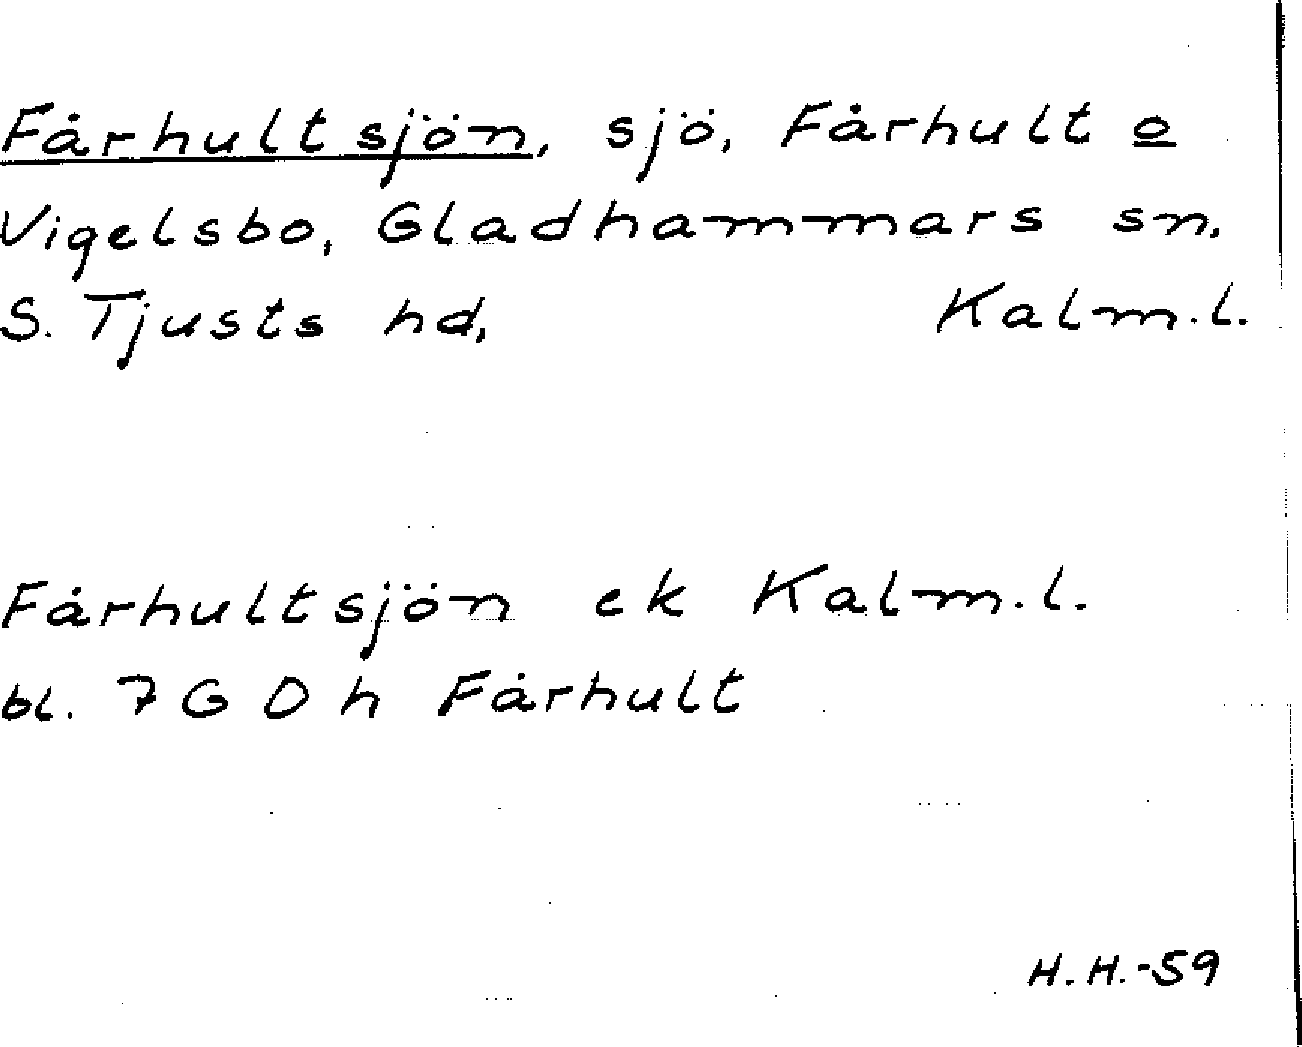 Fårhultsjön, sjö, Fårhult o
Vigelsbo, Gladhammars sn,
S. Tjusts hd, Kalm.l.
Fårhultsjön ek Kalm.l.
bl. 7 G 0 h Fårhult
H.H.-59